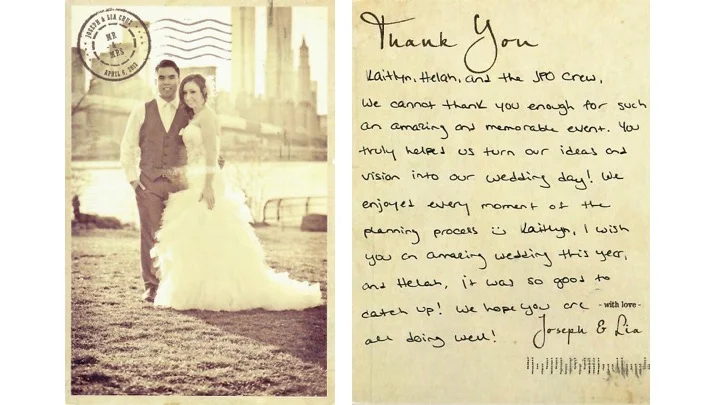 JOSEPH & LIA CRUZ
MR
&
MRS
APRIL 6, 2013
Thank You
Kaitlyn, Helah, and the JPO Crew,
We cannot thank you enough for such
an amazing and memorable event. You
truly helped us turn our ideas and
vision into our wedding day! We
enjoyed every moment of the
planning process :) Kaitlyn, I wish
you an amazing wedding this year,
and Helah, it was so good to
catch up! We hope you are
all doing well!
- with love -
Joseph & Lia